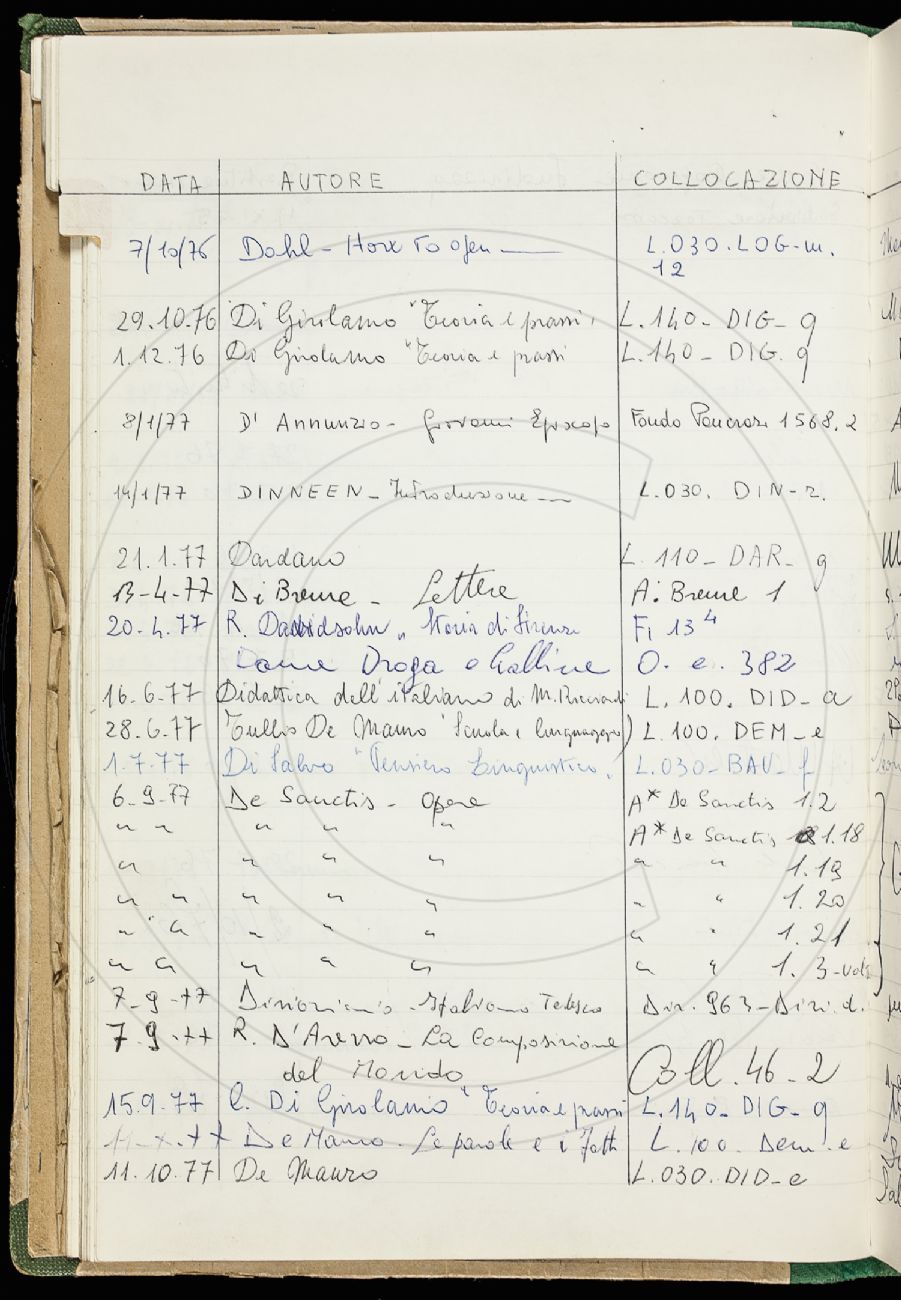 DATA AUTORE COLLOCAZIONE
7/10/76 Dahl - L.030.LOG-m.
12
29.10.76 Di Girolamo "Teoria e prassi" L.140- DIG- g
1.12.76 Di Girolamo "Teoria e prassi L.140- DIG. g
8/1/77 D'Annunzio - Giovanni Episcopo Fondo Pancrazi 1568.2
14/1/77 DINNEEN - Introduzione L.030. DIN-2.
21.1.77 Dardano L. 110- DAR- g
13-4-77 Di Breme - Lettere A. Breme 1
20.4.77 R. Davidsohn "Storia di Firenze Fi 13 4
Droga e Galline O. e. 382
16.6.77 Didattica dell'italiano di M. Ricciardi L. 100. DID-a
28.6.77 Tullio De Mauro "Scuola e linguaggio) L. 100. DEM-e
1.7.77 Di Salvo "Pensiero Linguistico" L.030-BAU-f
6-9-77 De Sanctis - Opere A* De Sanctis 1.2
" " " " " A* De Sanctis 1.18
" " " " " " 1.19
" " " " " " " 1.20
" " " " " " " 1.21
" " " " " " " 1. 3-vol
7-9-77 Dizionario Italiano Tedesco Diz. 963-Dizi.d.
7.9.77 R. D'Arezzo - La Composizione
del Mondo Coll. 46-2
15.9.77 C. Di Girolamo "Teoria e prassi L.140-DIG-g
11-x-77 De Mauro. Le parole e i fatti L. 100. Dem.e
11.10.77 De Mauro L.030.DID-e